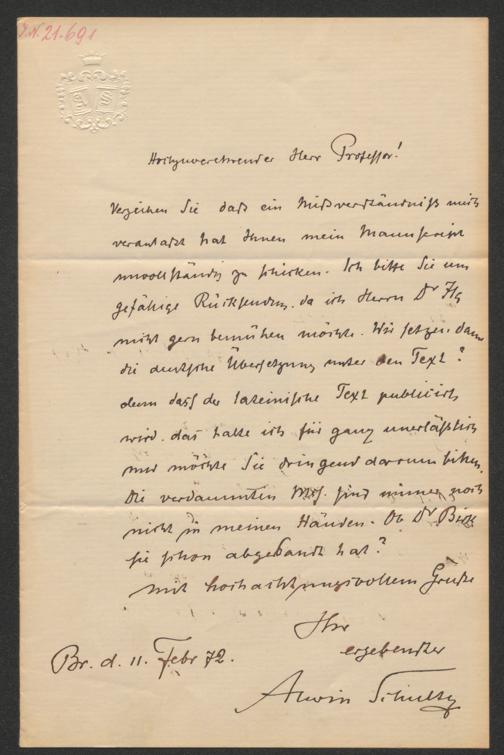 I.N. 21.691
Hochzuverehrender Herr Professor!
Verzeihen Sie daß ein Mißverständniß mich
veranlaßt hat Ihnen mein Manuscript
unvollständig zu schicken. Ich bitte Sie um
gefällige Rücksendung. da ich Herrn Dr Ilg
nicht gern bemühen möchte. Wir setzen dann
die deutsche Übersetzung unter den Text?
denn dass der lateinische Text publicirt
wird. das halte ich für ganz unerläßlich
und möchte Sie dringend darum bitten.
Die verdammten Msc. sind immer noch
nicht in meinen Händen. Ob Dr Birk
sie schon abgesandt hat?
Mit hochachtungsvollem Gruße
Ihr
ergebenster
Br. d. 11. Febr 72.
Alwin Schultz